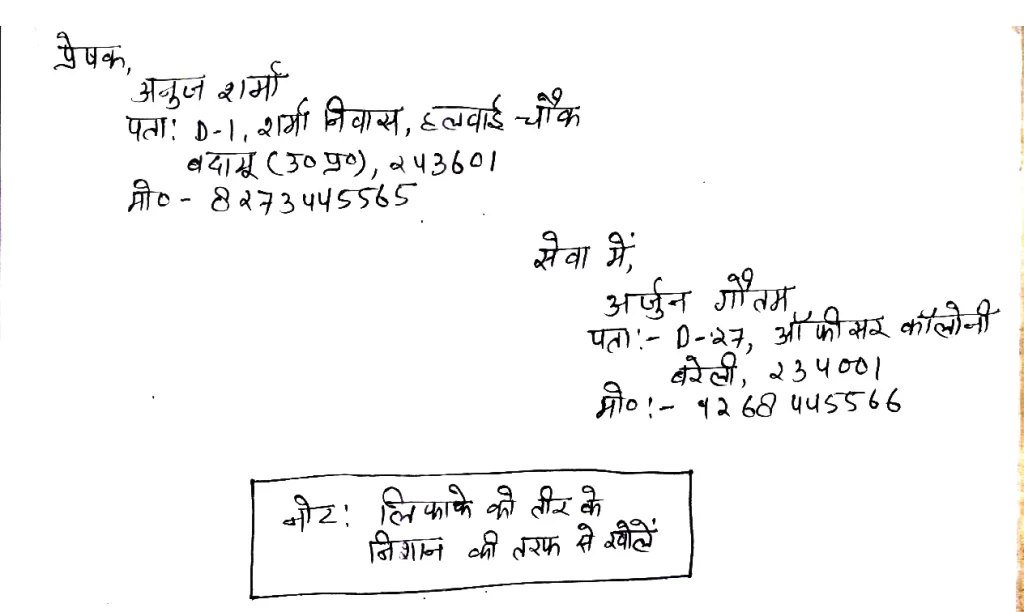 प्रेषक,
अनुज शर्मा
पता: D-1, शर्मा निवास, हलवाई चौक
बदायू (उ० प्र०), 243601
मो० - 8273445565
सेवा में,
अर्जुन गौतम
पता:- D-27, ऑफीसर कॉलोनी
बरेली, 234001
मो०:- 9268445566
नोट: लिफाफे को तीर के
निशान की तरफ से खोलें